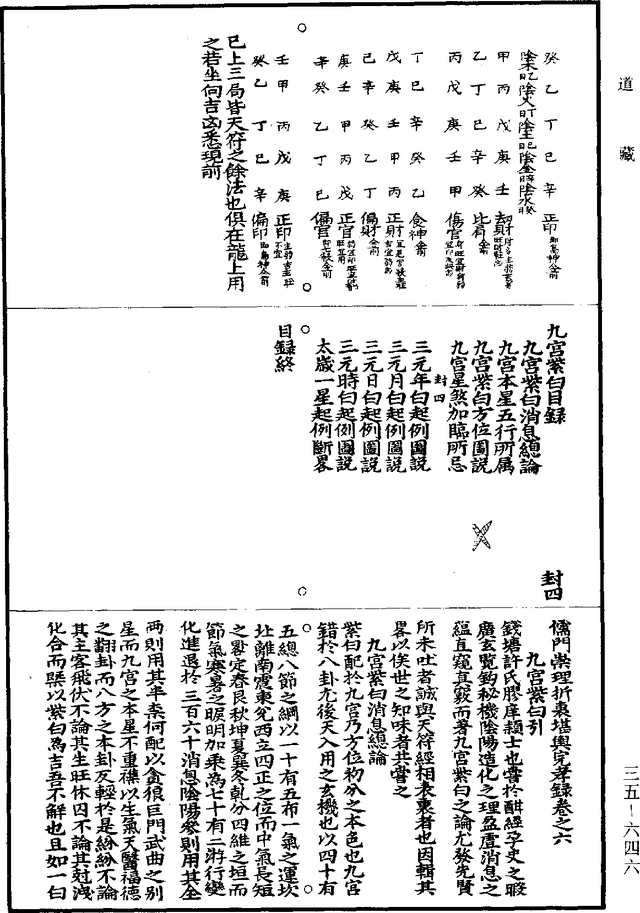 道藏
癸乙丁己辛 正印
甲丙戊庚壬 劫財
乙丁己辛癸 比肩 仝前
丙戊庚壬甲 傷官
丁己辛癸乙 食神 仝前
戊庚壬甲丙 正財
己辛癸乙丁 偏財 仝前
庚壬甲丙戊 正官
辛癸乙丁己 偏官 即七殺仝前
壬甲丙戊庚 正印
癸乙丁己辛 偏印 即梟神仝前
已上三局皆天符之餘法也俱在龍上用
之若坐向吉凶悉現前
九宮紫白目錄
九宮紫白消息總論
九宮本星五行所属
九宮紫白方位圖說
九宮星煞加臨所忌
封四
三元年白起例圖說
三元月白起例圖說
三元日白起例圖說
三元時白起例圖說
太歲一星起例斷畧
目錄終
封四
儒門崇理折衷堪輿完孝錄卷之六
九宮紫白引
錢塘許氏膠庠穎士也嘗於酣經孕史之暇
廣玄覽鈎秘機陰陽造化之理盈虛消息之
蘊直窺直竅而著九宮紫白之論尤發先賢
所未吐者誠與天符經相表裏者也因輯其
畧以俟世之知味者共嘗之
九宮紫白消息總論
紫白配於九宮乃方位初分之本色也九宮
錯於八卦尤後天入用之玄機也以四十有
五總八節之綱以一十有五布一氣之運坎
北離南震東兌西立四正之位而中氣長短
之晷定春艮秋坤夏巽冬乾分四維之垣而
節氣寒暑之候明加乘為七十有二游行變
化進退於三百六十消息陰陽參則用其全
兩則用其半柰何配以貪狼巨門武曲之别
星而九宮之本星不重襍以生氣天醫福德
之翻卦而八方之本卦反輕於是紛紛不論
其主客飛伏不論其生旺休囚不論其尅洩
化合而槩以紫白為吉吾不解也且如一白
三五－六四六